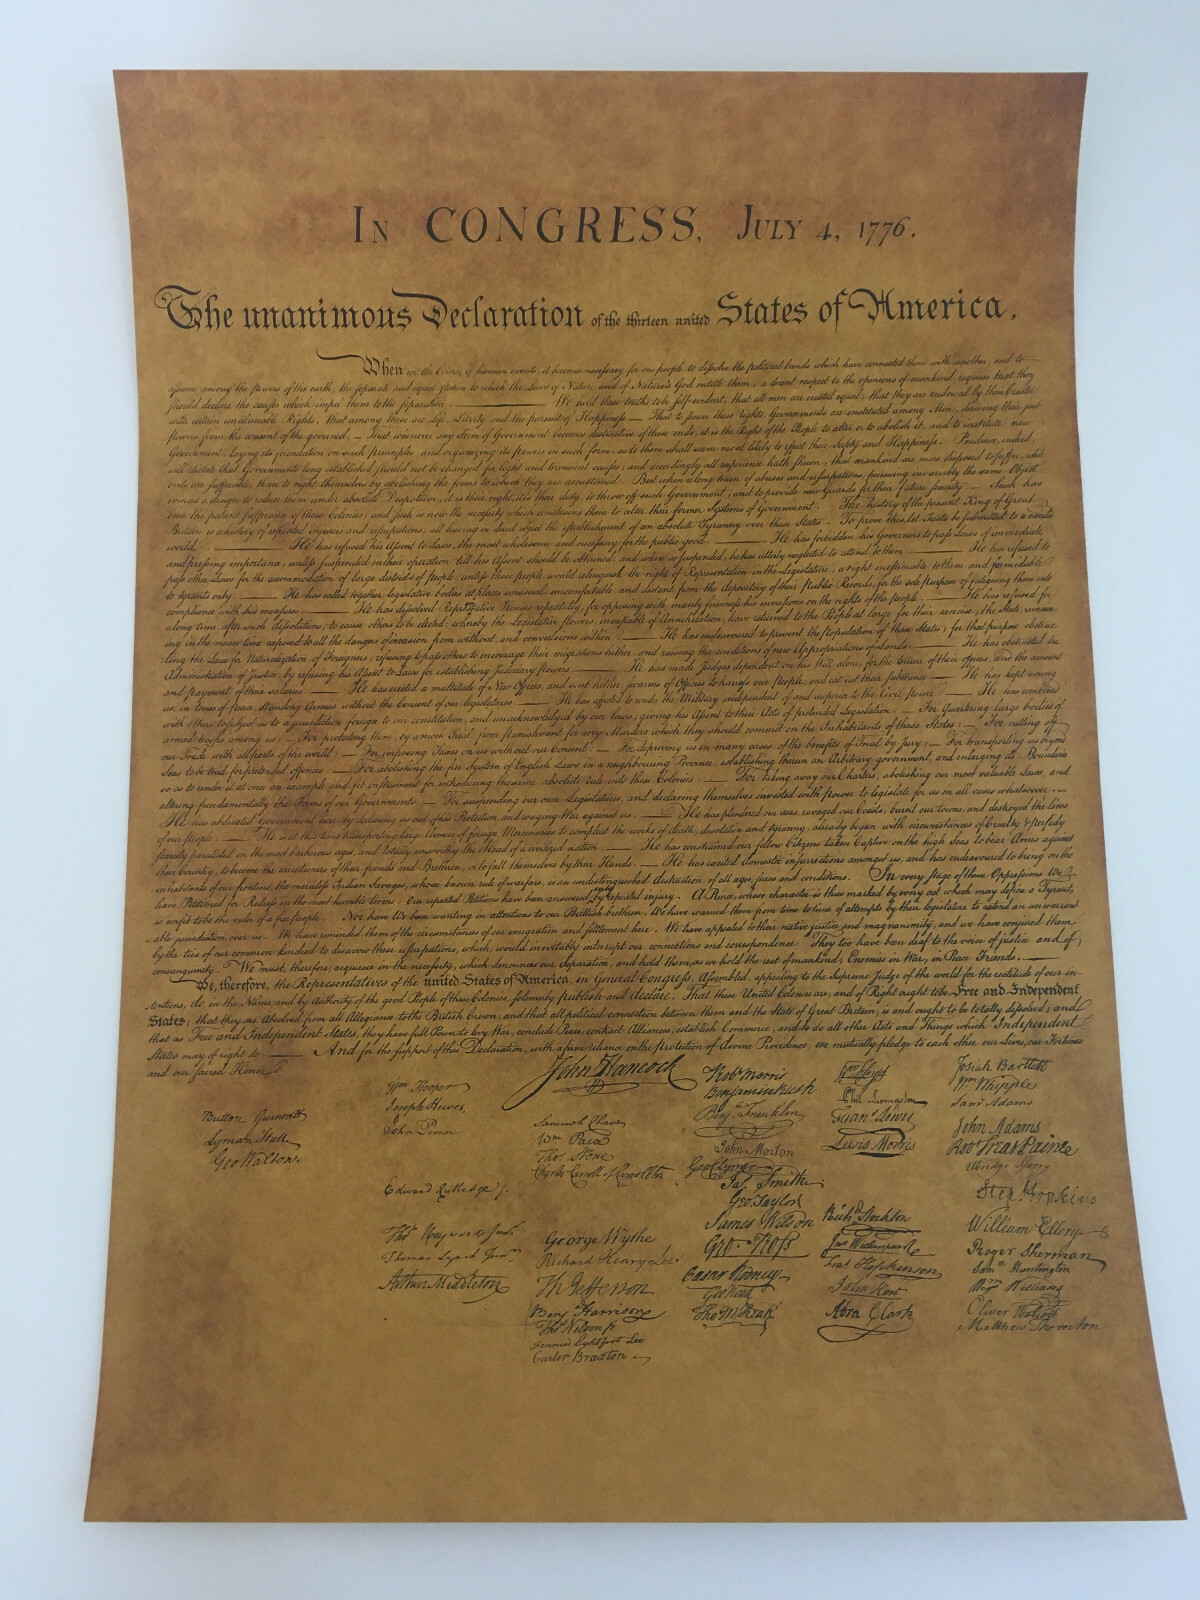 IN CONGRESS, JULY 4, 1776.
The unanimous Declaration of the thirteen united States of America.
When in the Course of human events, it becomes necessary for one people to dissolve the political bands which have connected them with another, and to
assume among the powers of the earth, the separate and equal station to which the Laws of Nature and of Nature's God entitle them, a decent respect to the opinions of mankind requires that they
should declare the causes which impel them to the separation. — We hold these truths to be self-evident, that all men are created equal, that they are endowed by their Creator
with certain unalienable Rights, that among these are Life, Liberty and the pursuit of Happiness. — That to secure these rights, Governments are instituted among Men, deriving their just
powers from the consent of the governed, — That whenever any Form of Government becomes destructive of these ends, it is the Right of the People to alter or to abolish it, and to institute new
Government, laying its foundation on such principles and organizing its powers in such form, as to them shall seem most likely to effect their Safety and Happiness. Prudence, indeed,
will dictate that Governments long established should not be changed for light and transient causes; and accordingly all experience hath shewn, that mankind are more disposed to suffer, while
evils are sufferable, than to right themselves by abolishing the forms to which they are accustomed. But when a long train of abuses and usurpations, pursuing invariably the same Object
evinces a design to reduce them under absolute Despotism, it is their right, it is their duty, to throw off such Government, and to provide new Guards for their future security. — Such has
been the patient sufferance of these Colonies; and such is now the necessity which constrains them to alter their former Systems of Government. The history of the present King of Great
Britain is a history of repeated injuries and usurpations, all having in direct object the establishment of an absolute Tyranny over these States. To prove this, let Facts be submitted to a candid
world. — He has refused his Assent to Laws, the most wholesome and necessary for the public good. — He has forbidden his Governors to pass Laws of immediate
and pressing importance, unless suspended in their operation till his Assent should be obtained; and when so suspended, he has utterly neglected to attend to them. — He has refused to
pass other Laws for the accommodation of large districts of people, unless those people would relinquish the right of Representation in the Legislature, a right inestimable to them and formidable
to tyrants only. — He has called together legislative bodies at places unusual, uncomfortable, and distant from the depository of their Public Records, for the sole purpose of fatiguing them into
compliance with his measures. — He has dissolved Representative Houses repeatedly, for opposing with manly firmness his invasions on the rights of the people. — He has refused for
a long time, after such dissolutions, to cause others to be elected; whereby the Legislative powers, incapable of Annihilation, have returned to the People at large for their exercise; the State remain-
ing in the mean time exposed to all the dangers of invasion from without, and convulsions within. — He has endeavoured to prevent the population of these States; for that purpose obstruc-
ting the Laws for Naturalization of Foreigners; refusing to pass others to encourage their migrations hither, and raising the conditions of new Appropriations of Lands. — He has obstructed the
Administration of Justice, by refusing his Assent to Laws for establishing Judiciary powers. — He has made Judges dependent on his Will alone, for the tenure of their offices, and the amount
and payment of their salaries. — He has erected a multitude of New Offices, and sent hither swarms of Officers to harass our people, and eat out their substance. — He has kept among
us, in times of peace, Standing Armies without the Consent of our legislatures. — He has affected to render the Military independent of and superior to the Civil power. — He has combined
with others to subject us to a jurisdiction foreign to our constitution, and unacknowledged by our laws; giving his Assent to their Acts of pretended Legislation: — For Quartering large bodies of
armed troops among us: — For protecting them, by a mock Trial, from punishment for any Murders which they should commit on the Inhabitants of these States: — For cutting off
our Trade with all parts of the world: — For imposing Taxes on us without our Consent: — For depriving us in many cases, of the benefits of Trial by Jury: — For transporting us beyond
Seas to be tried for pretended offences. — For abolishing the free System of English Laws in a neighbouring Province, establishing therein an Arbitrary government, and enlarging its Boundaries
so as to render it at once an example and fit instrument for introducing the same absolute rule into these Colonies: — For taking away our Charters, abolishing our most valuable Laws, and
altering fundamentally the Forms of our Governments: — For suspending our own Legislatures, and declaring themselves invested with power to legislate for us in all cases whatsoever. —
He has abdicated Government here, by declaring us out of his Protection and waging War against us. — He has plundered our seas, ravaged our Coasts, burnt our towns, and destroyed the lives
of our people. — He is at this time transporting large Armies of foreign Mercenaries to compleat the works of death, desolation and tyranny, already begun with circumstances of Cruelty & perfidy
scarcely paralleled in the most barbarous ages, and totally unworthy the Head of a civilized nation. — He has constrained our fellow Citizens taken Captive on the high Seas to bear Arms against
their Country, to become the executioners of their friends and Brethren, or to fall themselves by their Hands. — He has excited domestic insurrections amongst us, and has endeavoured to bring on the
inhabitants of our frontiers, the merciless Indian Savages, whose known rule of warfare, is an undistinguished destruction of all ages, sexes and conditions. In every stage of these Oppressions We
have Petitioned for Redress in the most humble terms: Our repeated Petitions have been answered only by repeated injury. A Prince, whose character is thus marked by every act which may define a Tyrant,
is unfit to be the ruler of a free people. Nor have We been wanting in attentions to our Brittish brethren. We have warned them from time to time of attempts by their legislature to extend an unwarrant-
able jurisdiction over us. We have reminded them of the circumstances of our emigration and settlement here. We have appealed to their native justice and magnanimity, and we have conjured them
by the ties of our common kindred to disavow these usurpations, which, would inevitably interrupt our connections and correspondence. They too have been deaf to the voice of justice and of
consanguinity. We must, therefore, acquiesce in the necessity, which denounces our Separation, and hold them, as we hold the rest of mankind, Enemies in War, in Peace Friends. —
We, therefore, the Representatives of the united States of America, in General Congress, Assembled, appealing to the Supreme Judge of the world for the rectitude of our in-
tentions, do, in the Name, and by Authority of the good People of these Colonies, solemnly publish and declare, That these United Colonies are, and of Right ought to be Free and Independent
States; that they are Absolved from all Allegiance to the British Crown, and that all political connection between them and the State of Great Britain, is and ought to be totally dissolved; and
that as Free and Independent States, they have full Power to levy War, conclude Peace, contract Alliances, establish Commerce, and to do all other Acts and Things which Independent
States may of right do. — And for the support of this Declaration, with a firm reliance on the protection of divine Providence, we mutually pledge to each other our Lives, our Fortunes
and our sacred Honor.
Button Gwinnett
Lyman Hall
Geo Walton.
Wm Hooper
Joseph Hewes,
John Penn
Edward Rutledge /.
Thos Heyward Junr.
Thomas Lynch Junr.
Arthur Middleton
John Hancock
Samuel Chase
Wm Paca
Thos Stone
Charles Carroll of Carrollton
George Wythe
Richard Henry Lee
Th Jefferson
Benj Harrison
Thos Nelson jr.
Francis Lightfoot Lee
Carter Braxton
Robt Morris
Benjamin Rush
Benj. Franklin
John Morton
Geo Clymer
Jas. Smith
Geo. Taylor
James Wilson
Geo. Ross
Caesar Rodney
Geo Read
Tho M:Kean
Wm Floyd
Phil. Livingston
Frans. Lewis
Lewis Morris
Richd. Stockton
Jno Witherspoon
Fras. Hopkinson
John Hart
Abra Clark
Josiah Bartlett
Wm Whipple
Saml Adams
John Adams
Robt Treat Paine
Elbridge Gerry
Step. Hopkins
William Ellery
Roger Sherman
Saml Huntington
Wm Williams
Oliver Wolcott
Matthew Thornton